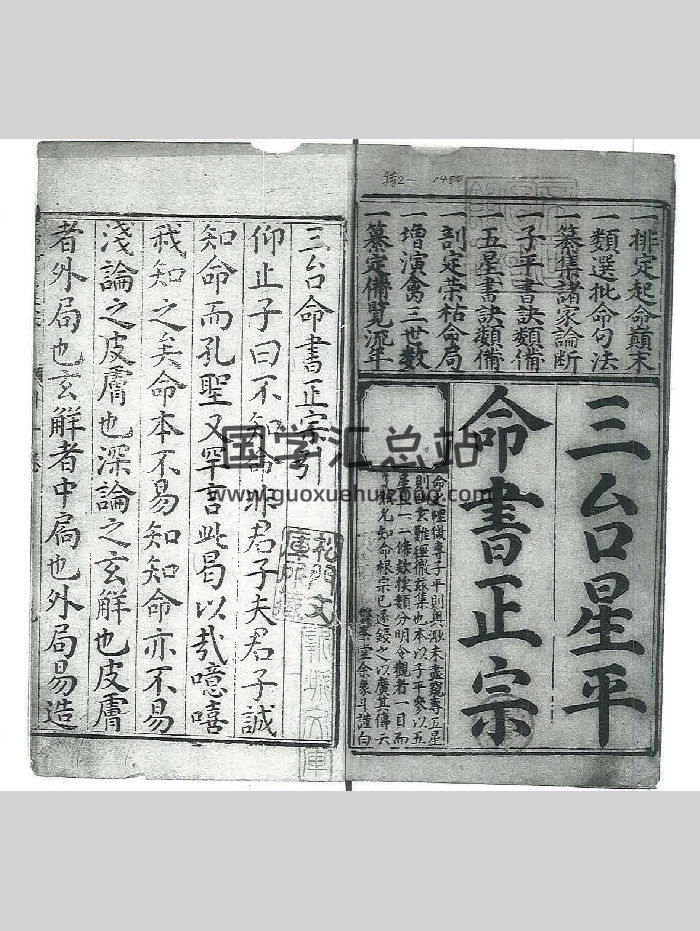 一排定起命巔末
一類選批命句法
一纂集諸家論斷
一子平書訣類備
一五星書訣類備
一剖定榮枯命局
一增演禽三世數
一纂定備覽流年
三台星平
命書正宗
理微專子平則與淵未盡窺專五星
則玄奧難徹茲集也本以子平參以五
星一一條欵模類分明令觀者一目而
了然知命根宗已逐鋟之以廣其傳云
雙峯堂余象斗謹白
三台命書正宗引
仰止子曰不知命非君子夫君子誠
知命而孔聖又罕言此曷以哉噫嘻
我知之矣命本不易知知命亦不易
淺論之皮膚也深論之玄解也皮膚
者外局也玄解者中扃也外局易造
国学汇总站